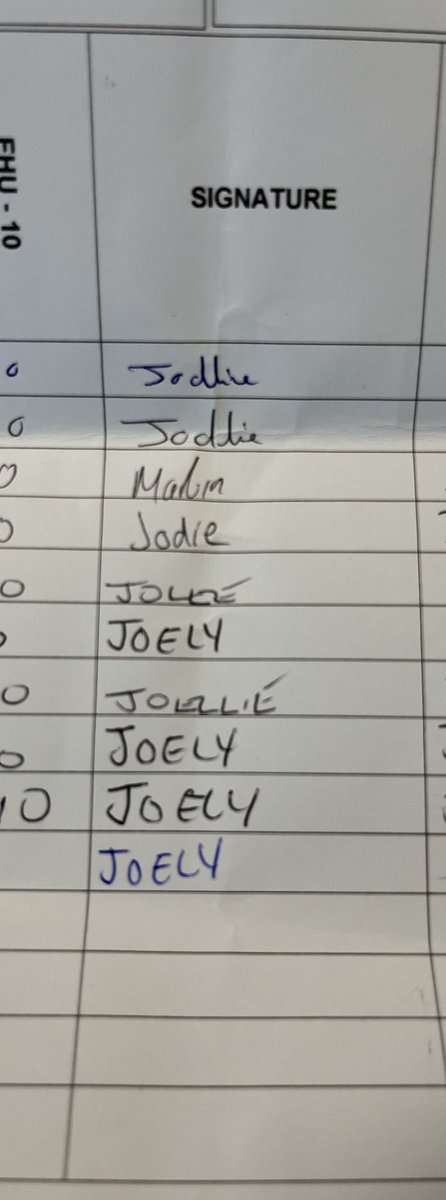 FHU - 10
SIGNATURE
o Jodllie
o Joddie
0 Malin
0 Jodie
0
JOELY
0 JOELLIE
0 JOELY
10 JOELY
JOELY